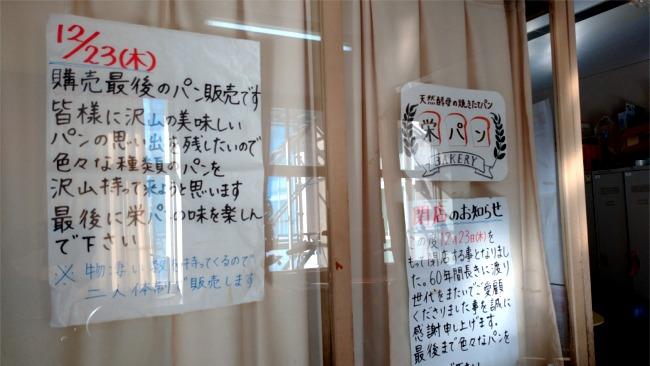 12/23(木)
購売最後のパン販売です
皆様に沢山の美味しい
パンの思い出を残したいので
色々な種類のパンを
沢山持って来ようと思います
最後に栄パンの味を楽しん
で下さい
※物凄い数を持ってくるので
二人体制で販売します
天然酵母の焼きたてパン
栄パン
BAKERY
閉店のお知らせ
この度12月23日(木)を
もって閉店する事となりまし
た。60年間長きに渡り
世代をまたいでご愛顧
くださりました事を誠に
感謝申し上げます。
最後まで色々なパンを